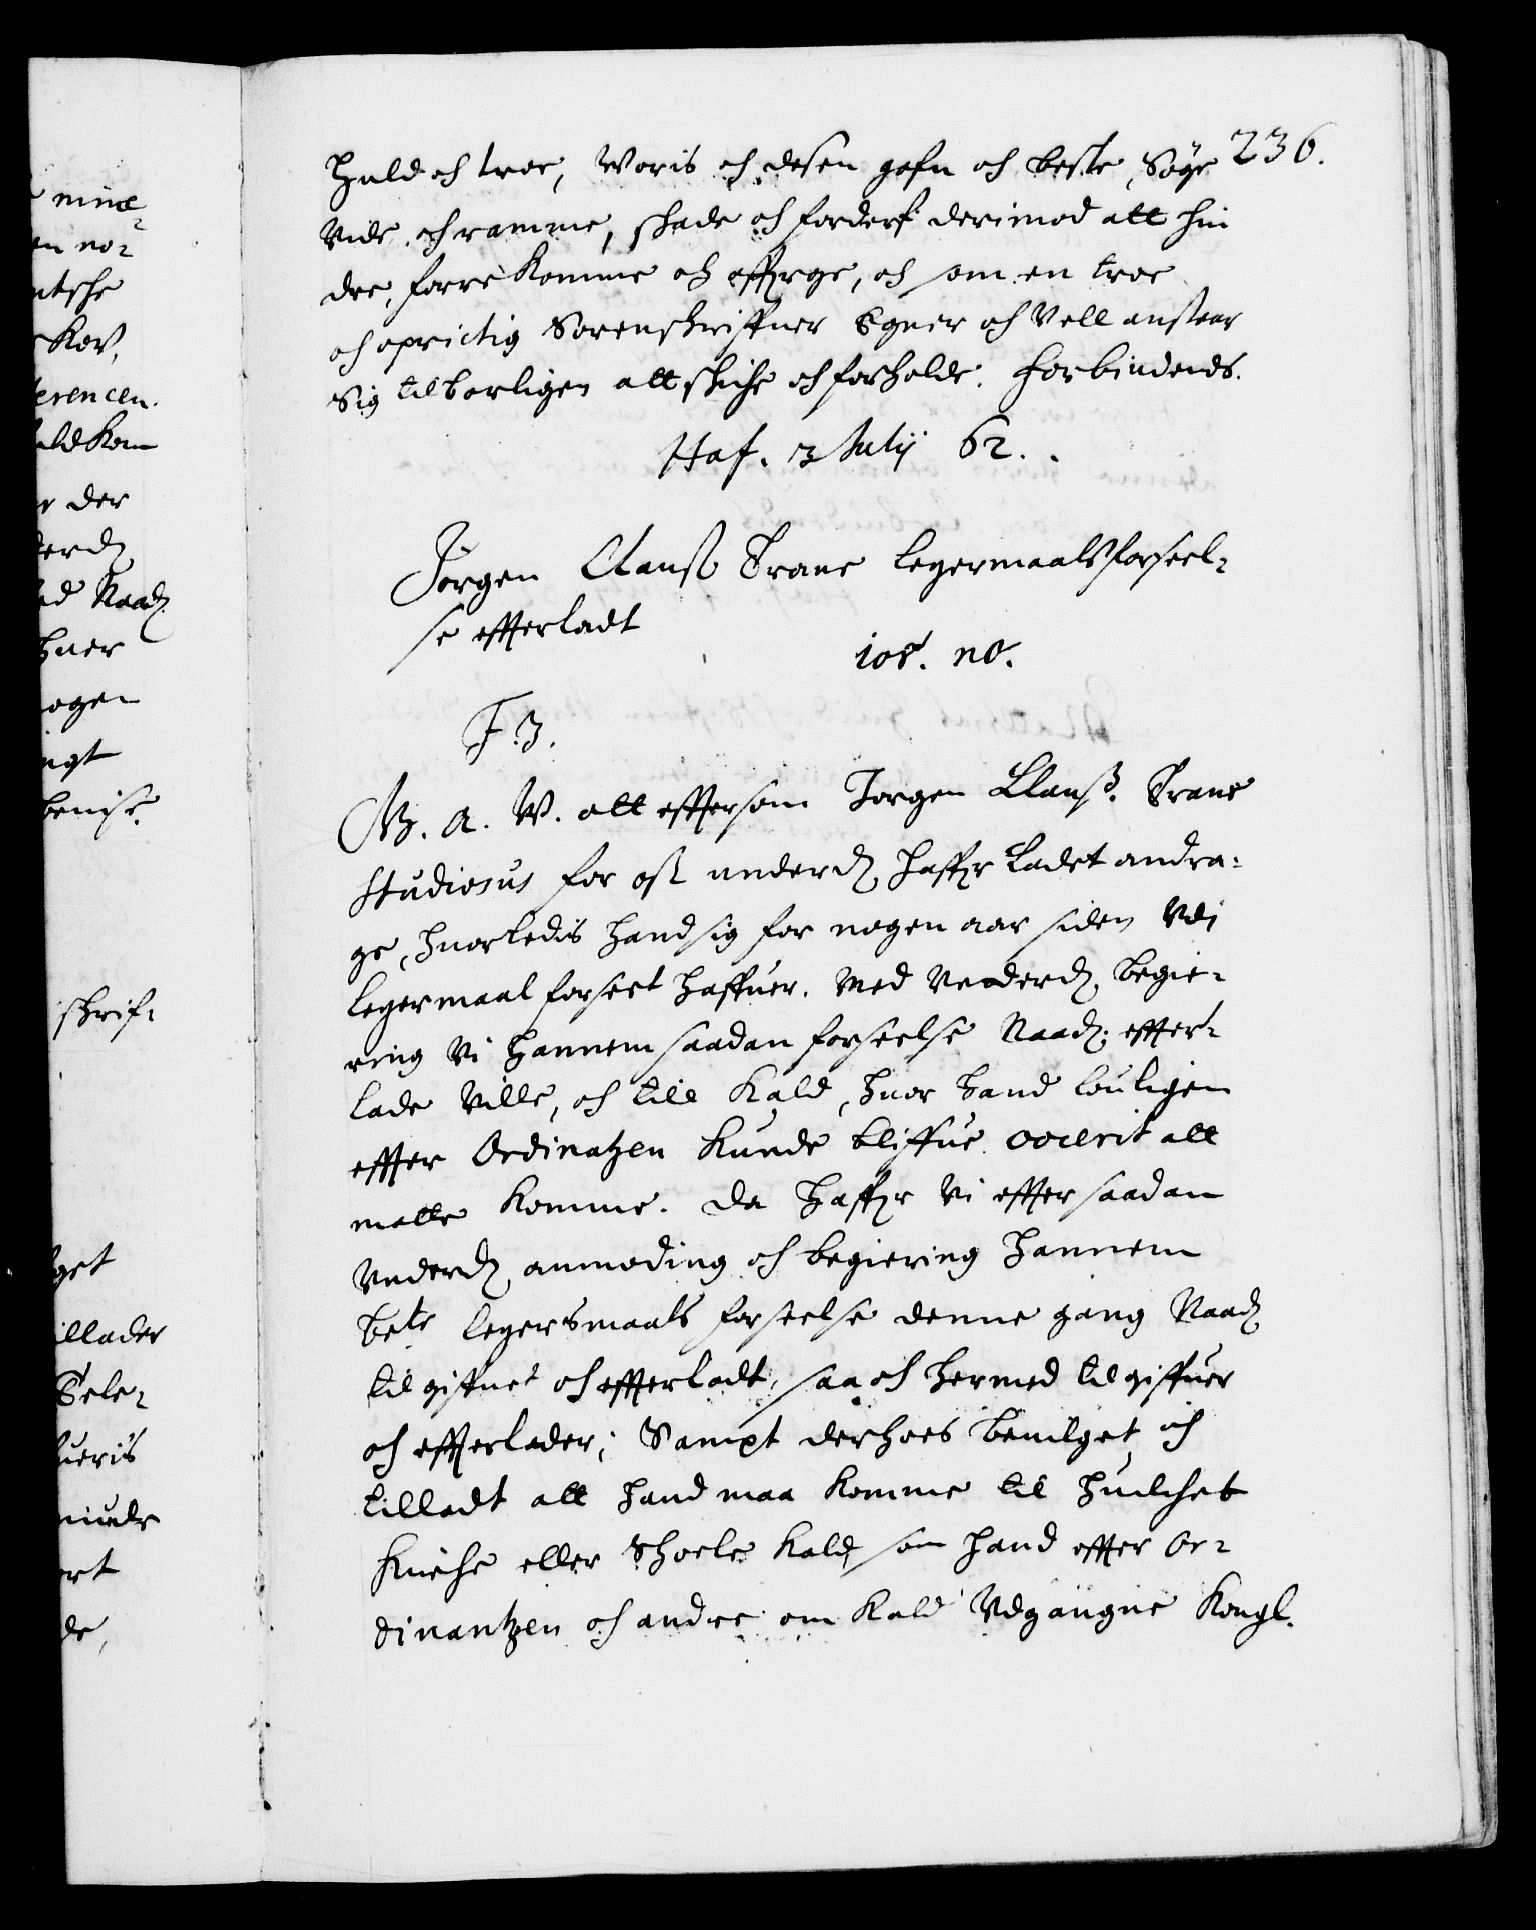 236.
Huld och troe, Woris och desen gafn och beste, Søge
Vide och ramme, skade och forderf derimod att hin
dre, forrekomme och affverge, och som en troe
och oprictig Sorenskriffuer Egner och Vell anstaar
Sig tilborligen att skiche och forholde. Forbindends.
Haf. 3 Julij 62.
Jørgen Clauß Trane legermaalsforseel-
se efterladt
108. no.
F. 3.
G. A. W. att efftersom Jørgen Clauß. Trane
Studiosus for oß underd. haffr ladet andra-
ge, huorledis hand sig for nogen aar siden Udi
legermaal forseet haffuer. Med Underd. begie-
ring Vi hannem saadan forseelse Naad. effter-
lade Ville, och till Kald, huor hand louligen
effter Ordinatzen kunde bliffue vocerit att
motte komme. Da haffr Vi effter saadan
Underd. anmoding och begiering hannem
bete legersmaals forseelse denne gang Naad.
tilgiffuet och effterladt, saa och hermed tilgiffuer
och effterlader; Sampt derhoes beuilget och
tilladt att hand maa komme til huilchet
Kirche eller Schoele Kald, som hand effter Or-
dinantzen och andre om Kald Udgangne Kongl.